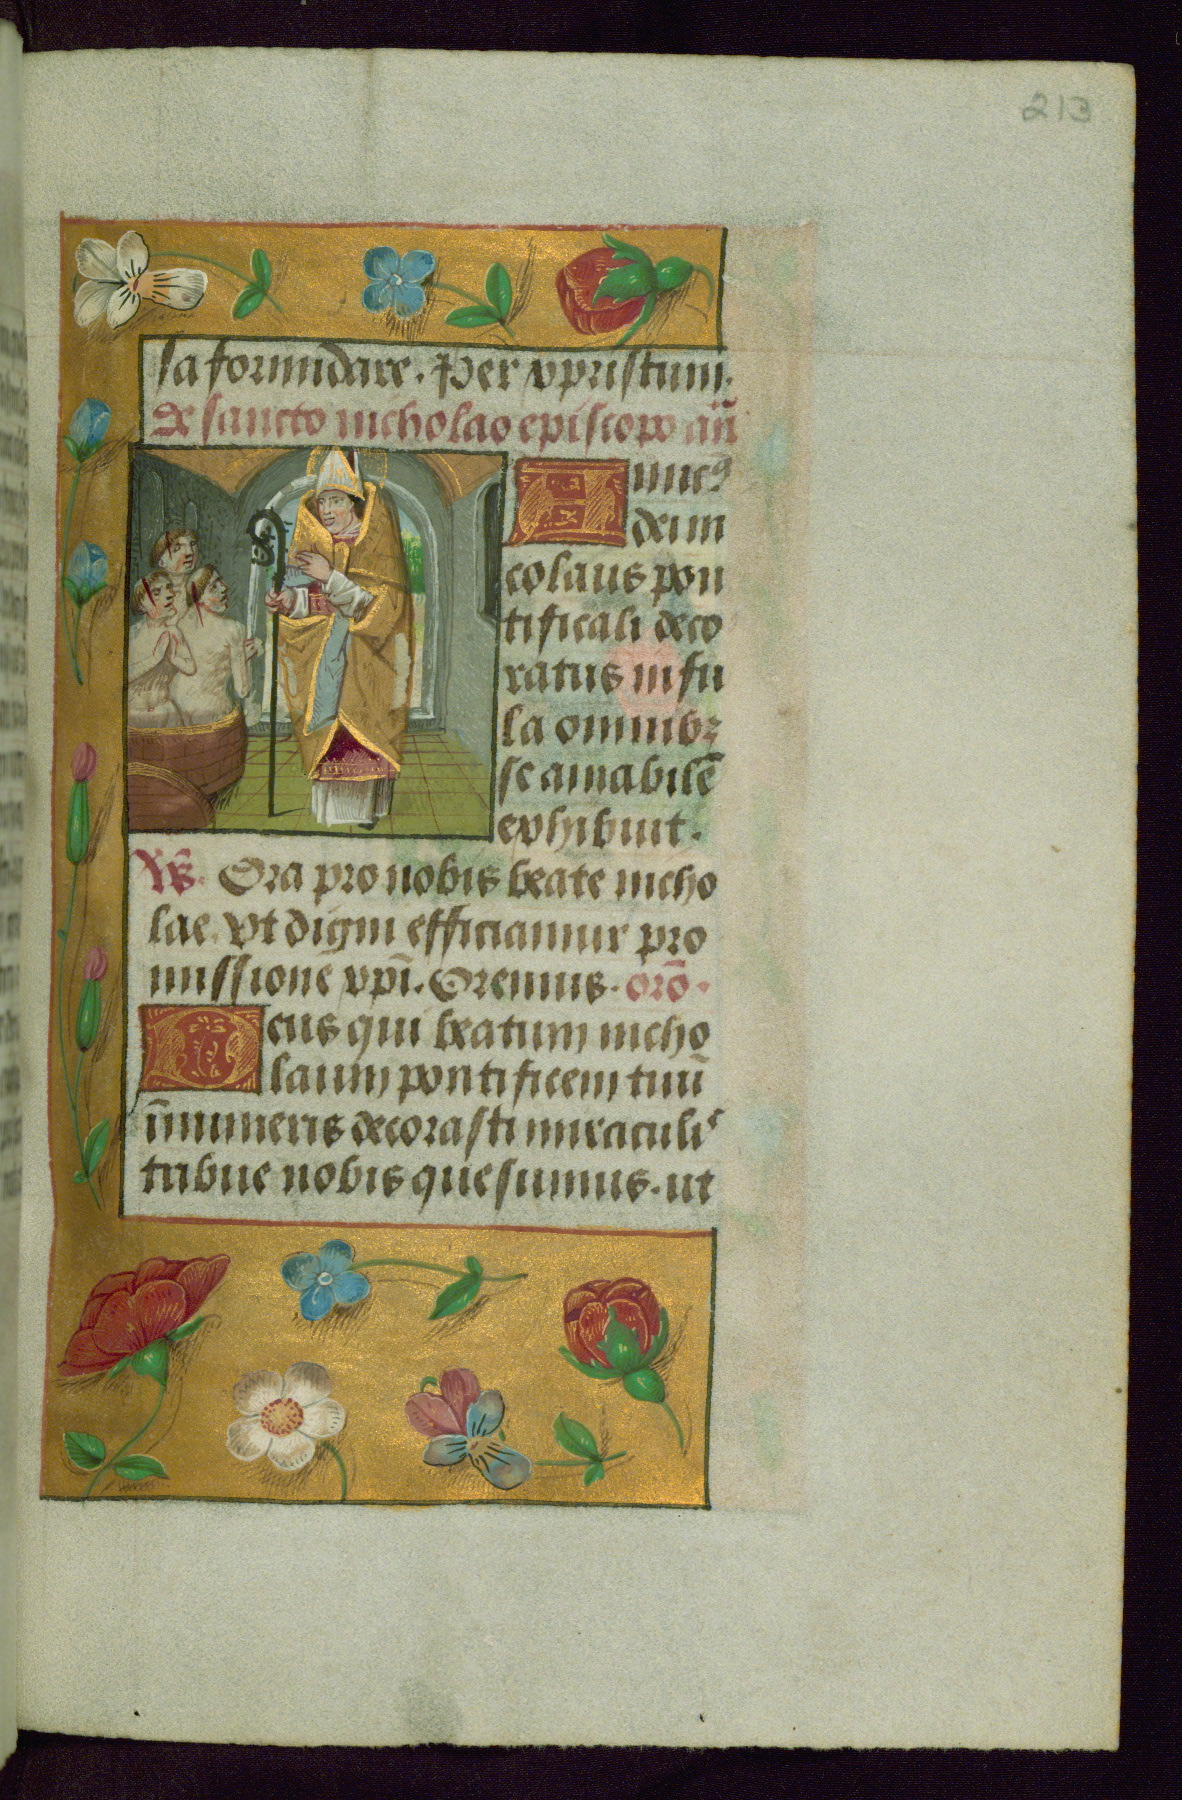 213
sa formidare. Per xpristum.
De sancto nicholao episcopo añ
Amic9
dei ni
colaus pon
tificali deco
ratus infu
la omnibꝫ
se amabilē
exhibuit.
Ora pro nobis beate nicho
lae. Vt digni efficiamur pro
missione xpī. Oremus. orō.
Deus qui beatum nicho
laum pontificem tuū
īnumeris decorasti miraculis
tribue nobis quesumus. ut